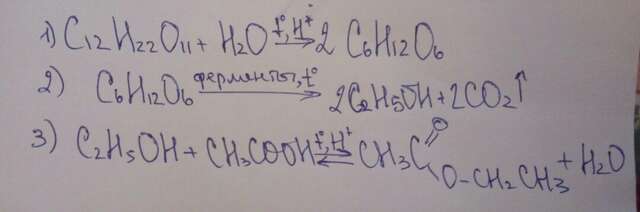 1) C12H22O11 + H2O t°, H⁺→ 2 C6H12O6
2) C6H12O6 ферменты, t°→ 2C2H5OH + 2CO2↑
3) C2H5OH + CH3COOH t, H⁺⇌ CH3C O O-CH2CH3 + H2O